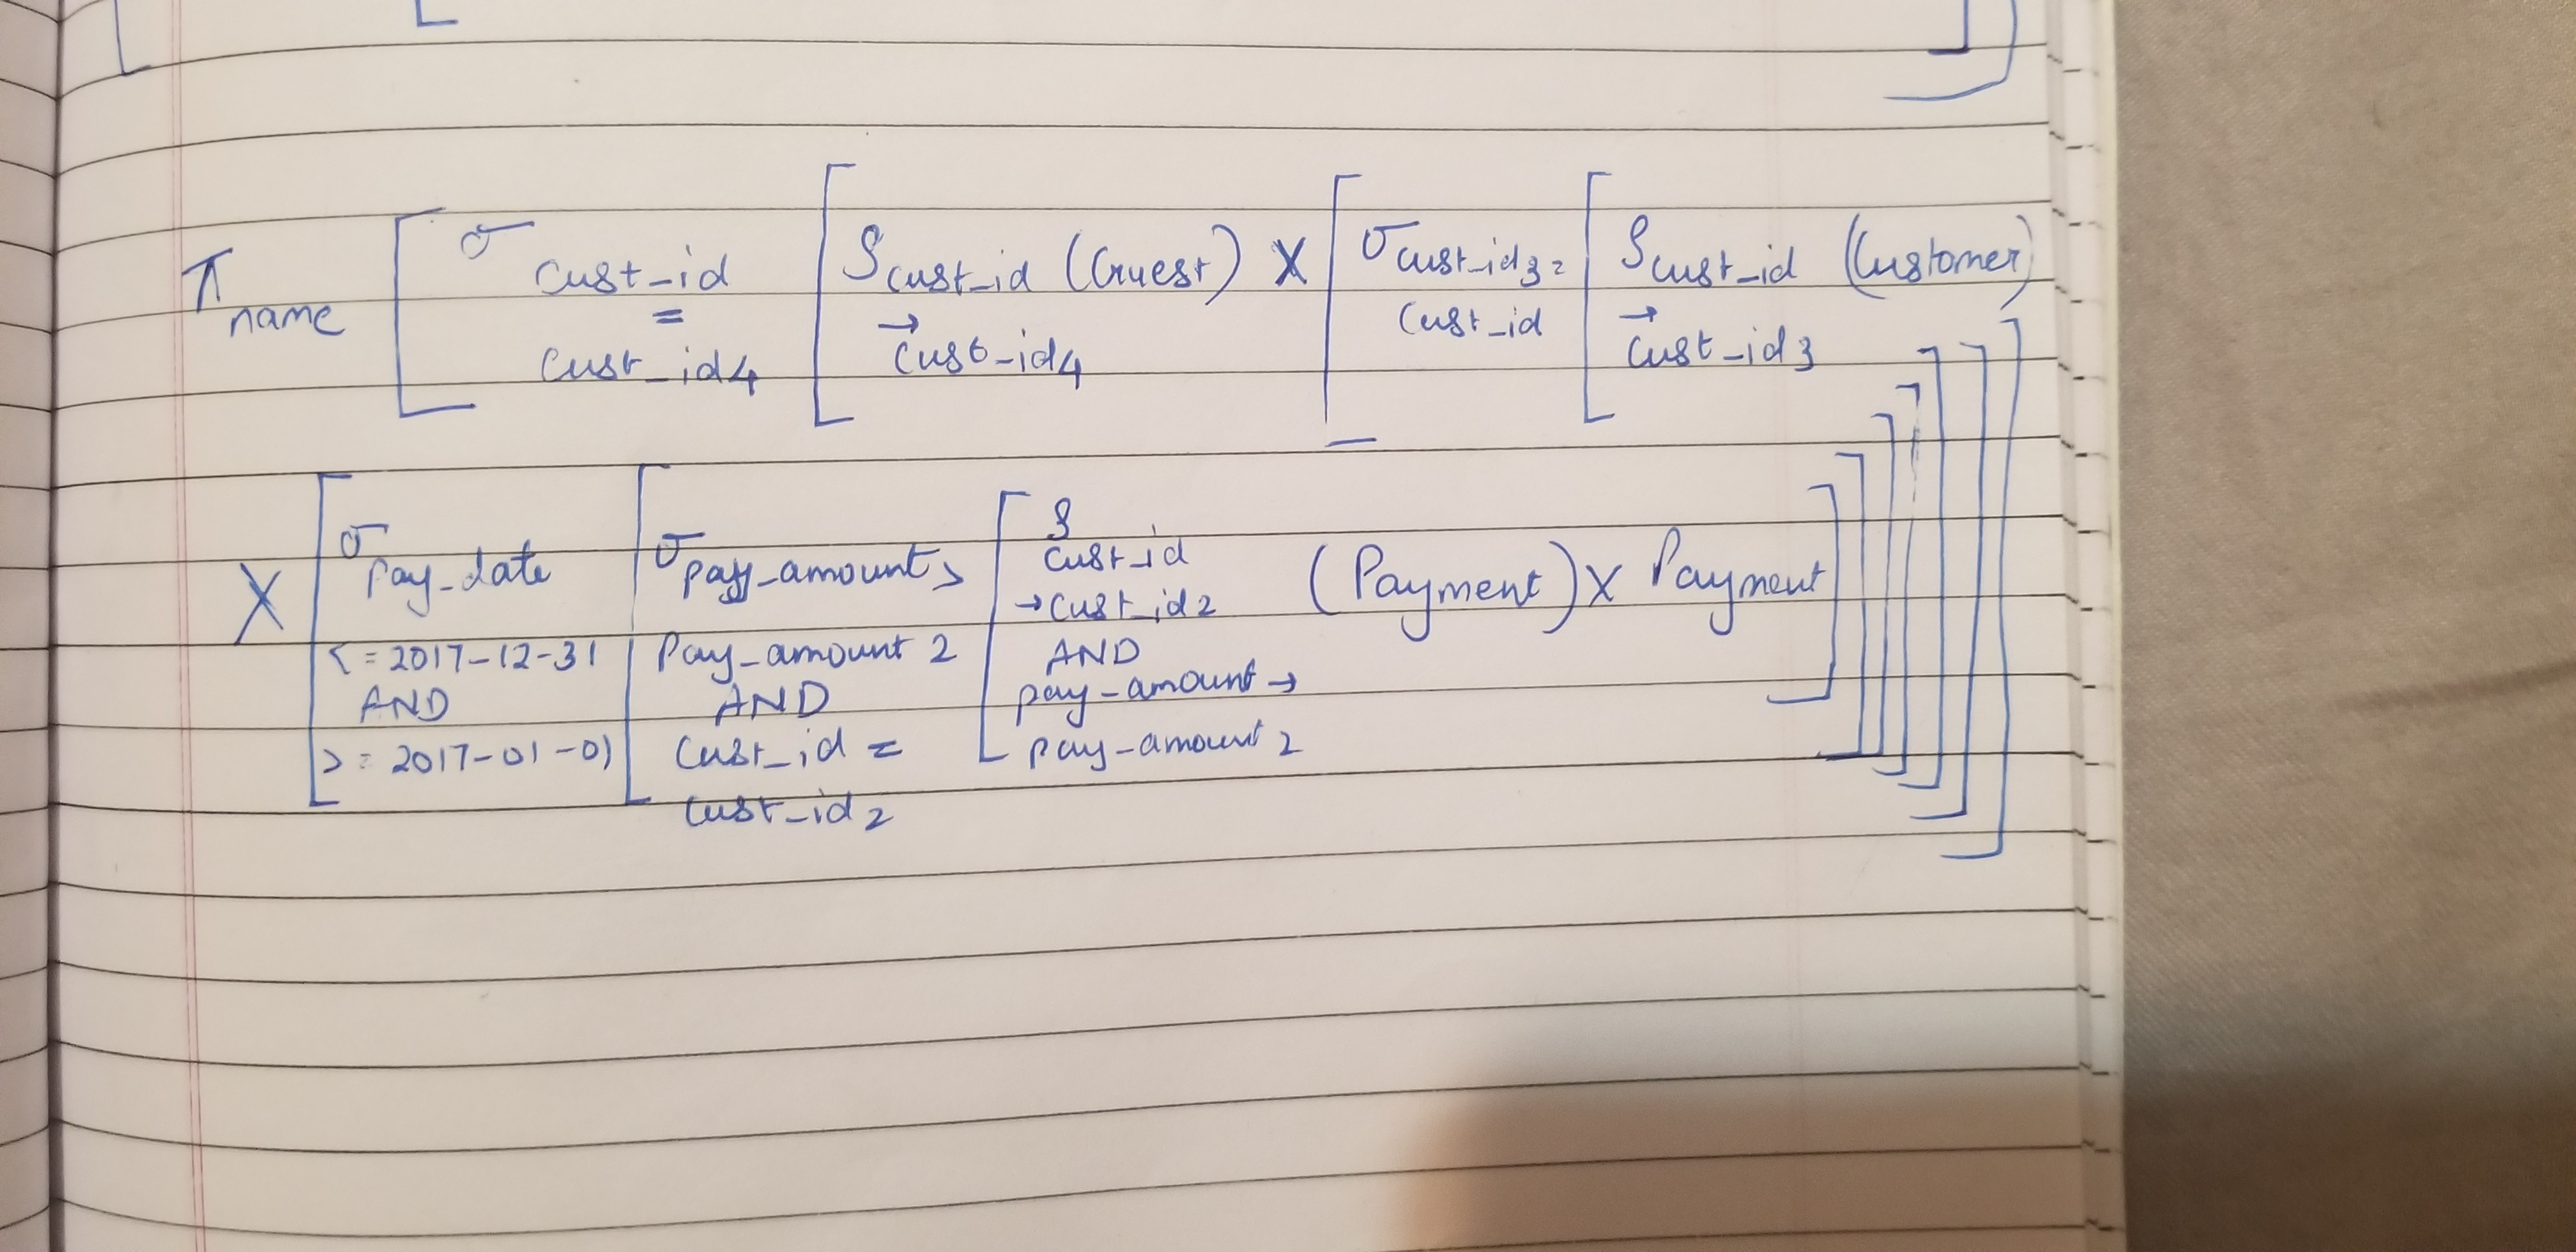 π name [ σ cust_id = cust_id4 [ ρ cust_id → cust_id4 (Guest) X [ σ cust_id3 = cust_id [ ρ cust_id → cust_id3 (Customer)
X [ σ Pay_date <= 2017-12-31 AND >= 2017-01-01 [ σ pay_amount > Pay_amount2 AND cust_id = cust_id2 [ ρ cust_id → cust_id2 AND pay_amount → pay_amount2 (Payment) X Payment ] ] ] ] ] ] ]